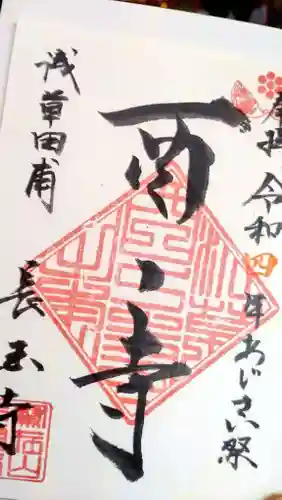 奉拝 令和四年あじさい祭
酉之寺
浅草田甫
長国寺